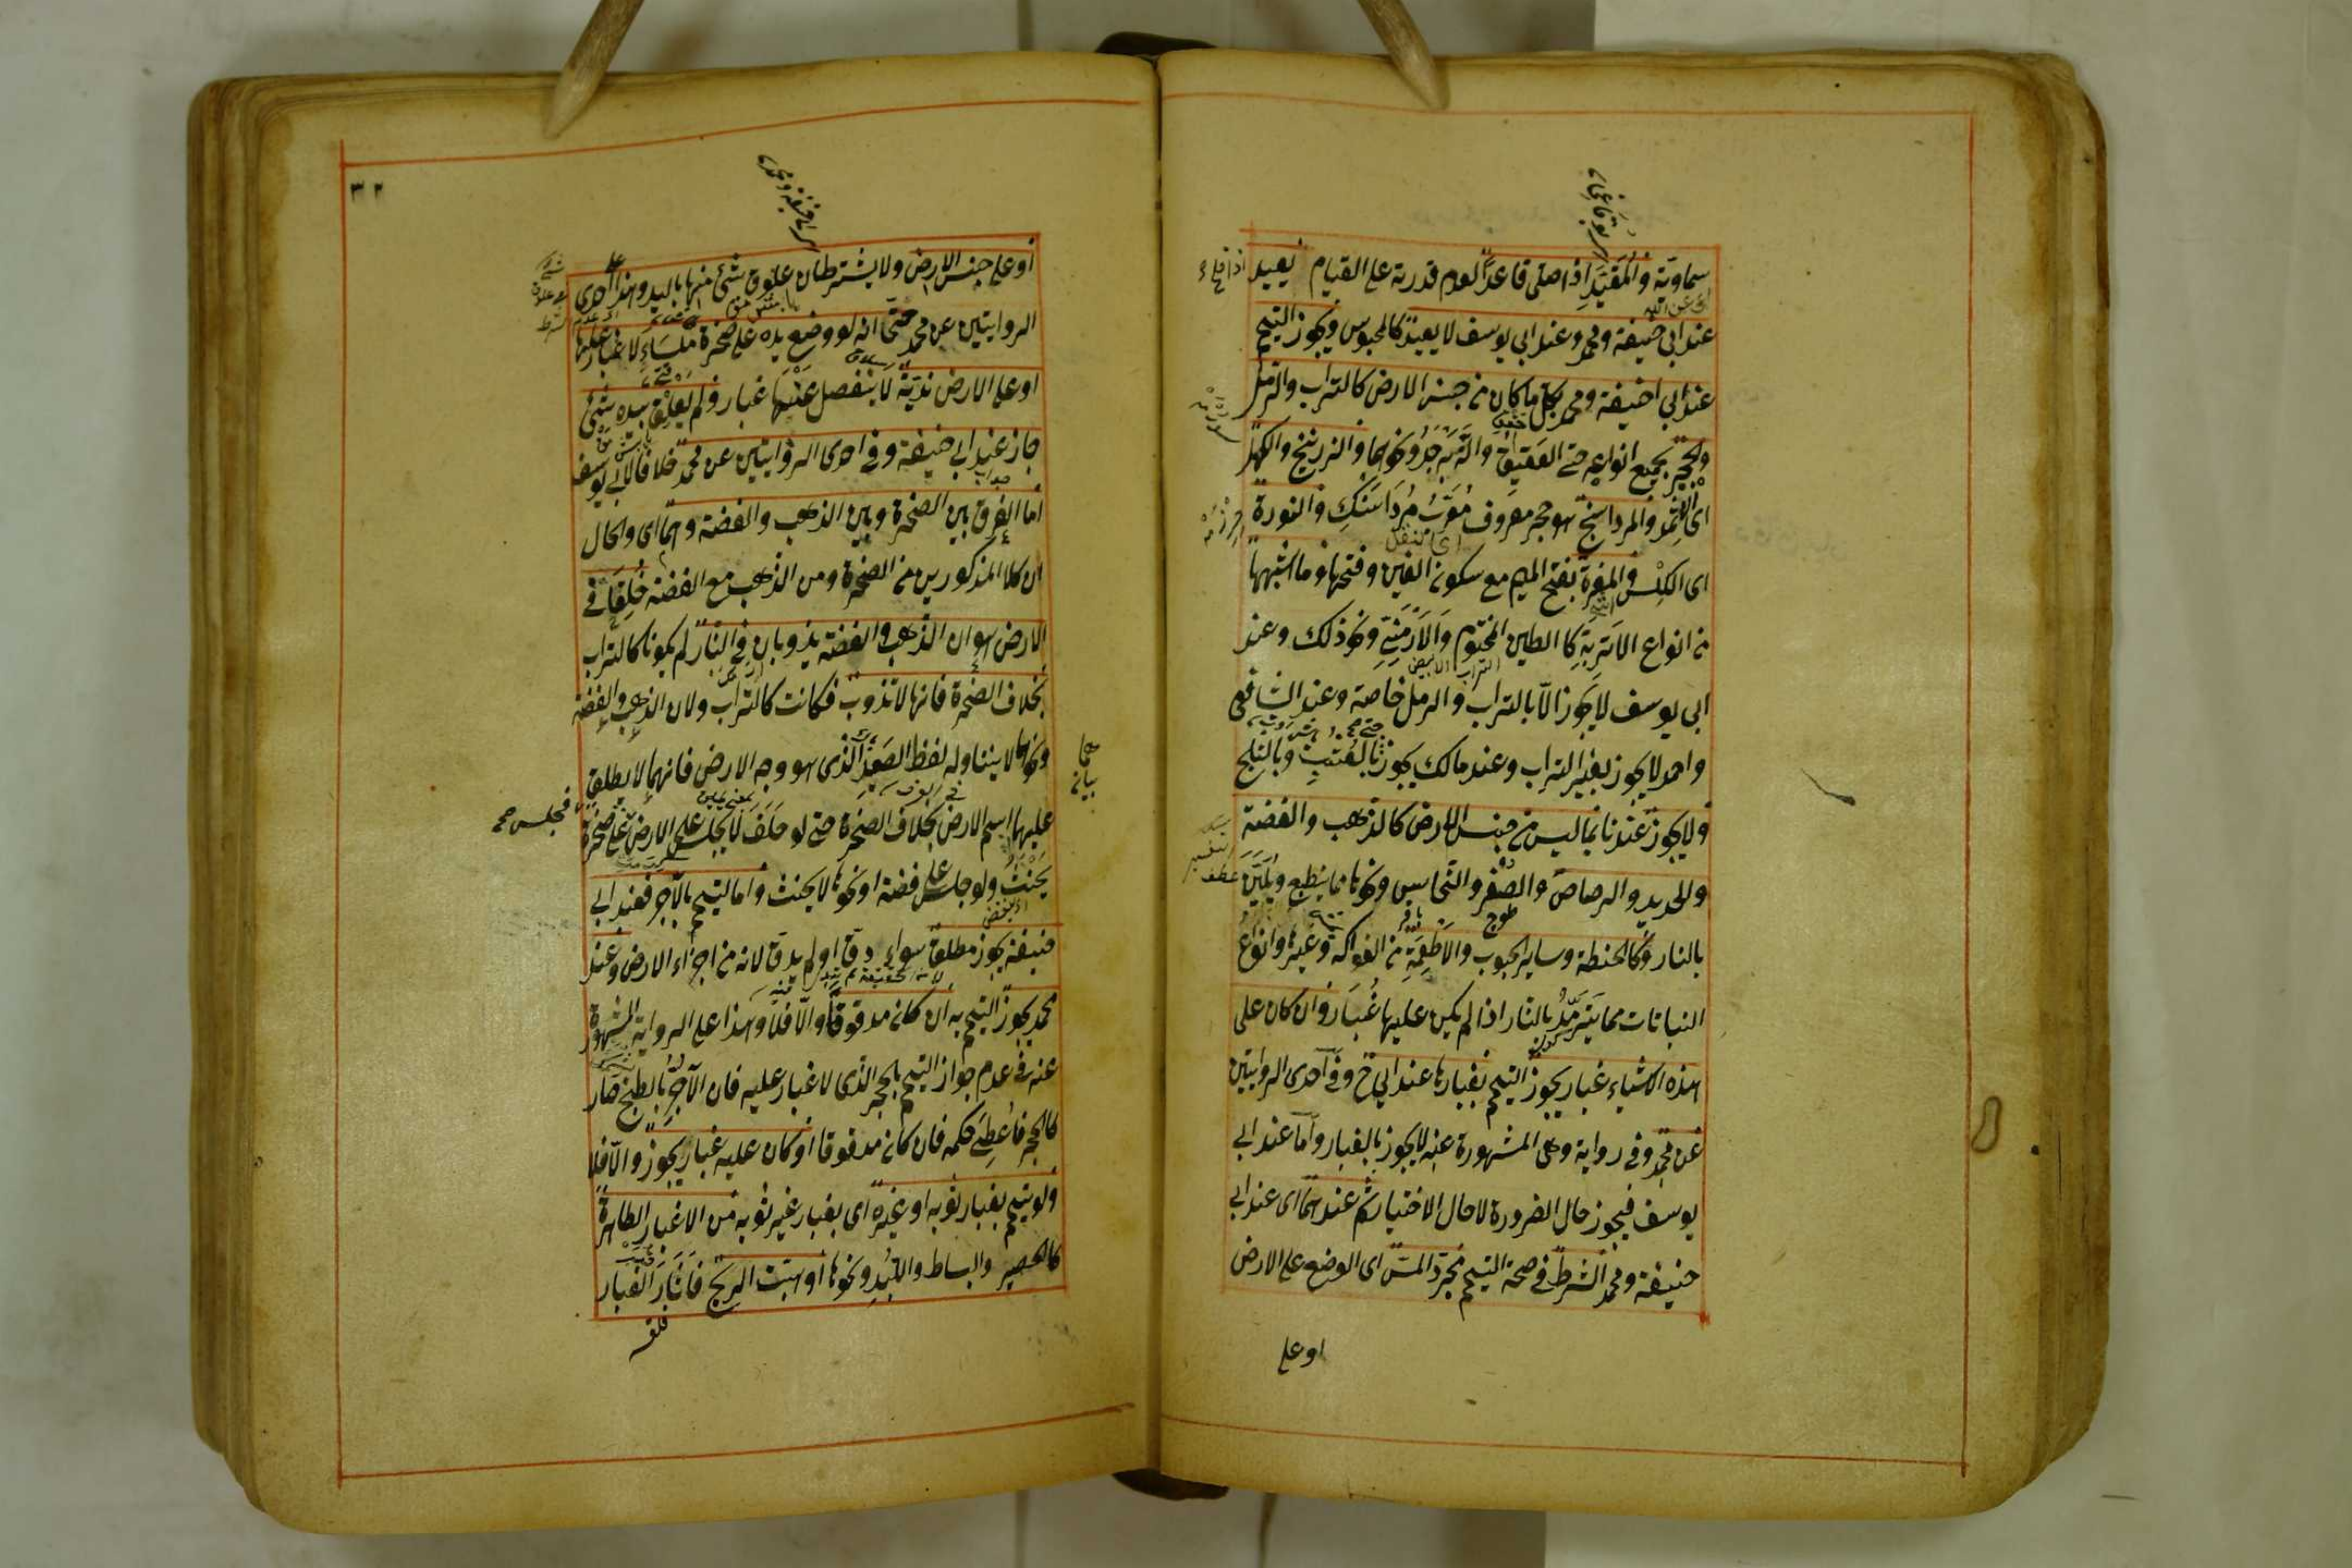 سماوية والمقيد اذا صلى قاعدا لعدم قدرته على القيام يعيد
عند ابى حنيفة ومحمد وعند ابى يوسف لا يعيد كالمحبوس ويجوز التيمم
عند ابى حنيفة ومحمد بكل ما كان من جنس الارض كالتراب والرمل
والحجر بجميع انواعه حتى العقيق والزبرجد ونحوهما والزرنيخ والكحل
اى الاثمد والمرداسنج هو حجر معروف معرب مرداسنك والنورة
اى الكلس والمغرة بفتح الميم مع سكون الغين وفتحها وما اشبهها
من انواع الاتربة كالطين المختوم والارمنى ونحو ذلك وعند
ابى يوسف لا يجوز الا بالتراب والرمل خاصة وعند الشافعى
واحمد لا يجوز بغير التراب وعند مالك يجوز بالعشب وبالثلج
ولا يجوز عندنا بما ليس من جنس الارض كالذهب والفضة
والحديد والرصاص والصفر والنحاس ونحوها مما ينطبع ويلين
بالنار وكالحنطة وساير الحبوب والاطعمة من الفواكه وغيرها وانواع
النباتات مما يترمد بالنار اذا لم يكن عليها غبار وان كان على
هذه الاشياء غبار يجوز التيمم بغبارها عند ابى ح وفى احدى الروايتين
عن محمد وفى رواية وهى المشهورة عنه لا يجوز بالغبار واما عند ابى
يوسف فيجوز حال الضرورة لا حال الاختيار ثم عندهما اى عند ابى
حنيفة ومحمد الشرط فى صحة التيمم مجرد المس اى الوضع على الارض
او على
٣٢
او على جنس الارض ولا يشترطان علوق شئ منها باليد وهذا احدى
الروايتين عن محمد حتى انه لو وضع يده على صخرة ملساء لا غبار عليها
او على الارض ندية لا ينفصل عنها غبار ولم يعلق بيده شئ
جاز عند ابى حنيفة وفى احدى الروايتين عن محمد خلافا لابى يوسف
اما الفرق بين الصخرة وبين الذهب والفضة وهما اى والحال
ان كلا المذكورين من الصخرة ومن الذهب مع الفضة خلقا فى
الارض هو ان الذهب والفضة يذوبان فى النار لم يكونا كالتراب
بخلاف الصخرة فانها لا تذوب فكانت كالتراب ولان الذهب والفضة
ونحوهما لا يتناوله لفظ الصعيد الذى هو وجه الارض فانهما لا يطلق
عليهما اسم الارض بخلاف الصخرة حتى لو حلف لا يجلس على الارض على صخرة
يحنث ولو جلس على فضة او نحوها لا يحنث واما التيمم بالآجر فعند ابى
حنيفة يجوز مطلقا سواء دق او لم يدق لانه من اجزاء الارض وعند
محمد يجوز التيمم به ان كان مدقوقا والا فلا وهذا على الرواية المشهورة
عنه فى عدم جواز التيمم بالحجر الذى لا غبار عليه فان الآجر بالطبخ صار
كالحجر فاعطى حكمه فان كان مدقوقا او كان عليه غبار يجوز والا فلا
ولو تيمم بغبار ثوبه او غيره اى بغبار غير ثوبه من الاغبار الطاهرة
كالحصير والبساط واللبد ونحوها او هبت الريح فاثار الغبار